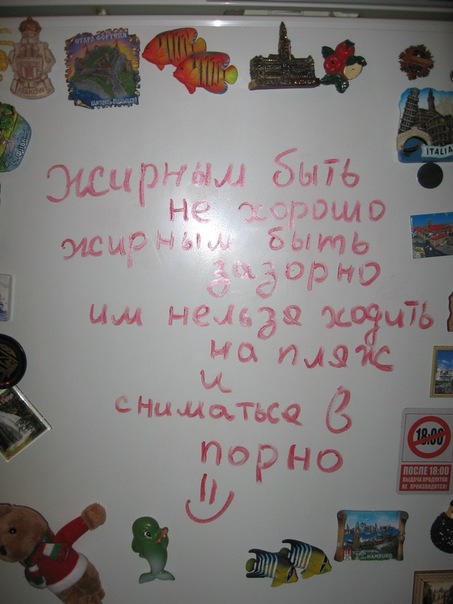 жирным быть
не хорошо
жирным быть
зазорно
им нельзя ходить
на пляж
и
сниматься в
порно
=)
ITALIA
18:00
ПОСЛЕ 18:00
ВЫДАЧА ПРОДУКТОВ
НЕ ПРОИЗВОДИТСЯ!
HAMBURG